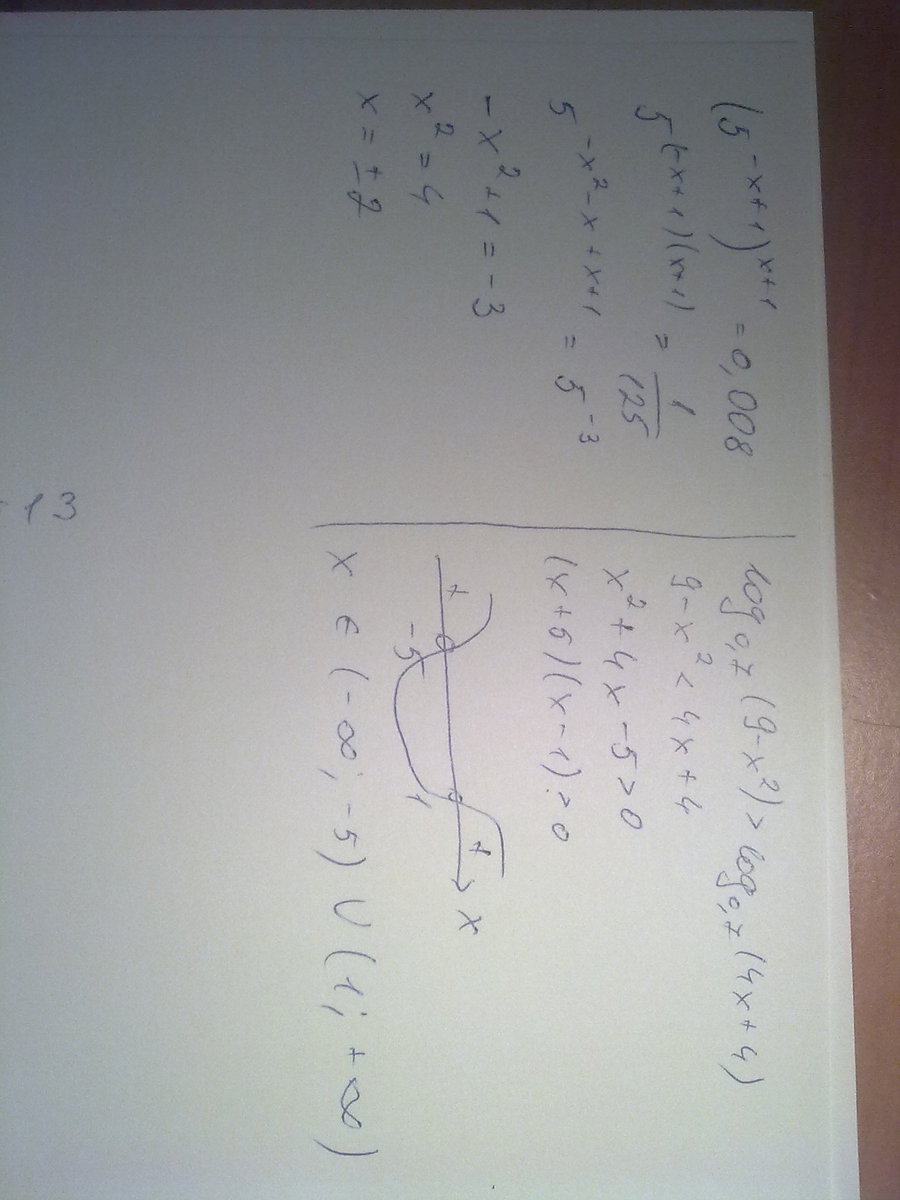 (5^{-x+1})^{x+1} = 0,008
5^{(-x+1)(x+1)} = 1/125
5^{-x²-x+x+1} = 5^{-3}
-x² + 1 = -3
x² = 4
x = ±2
log₀,₇(9-x²) > log₀,₇(4x+4)
9-x² < 4x+4
x² + 4x - 5 > 0
(x+5)(x-1) > 0
+ + x
-5 1
x ∈ (-∞; -5) ∪ (1; +∞)
13